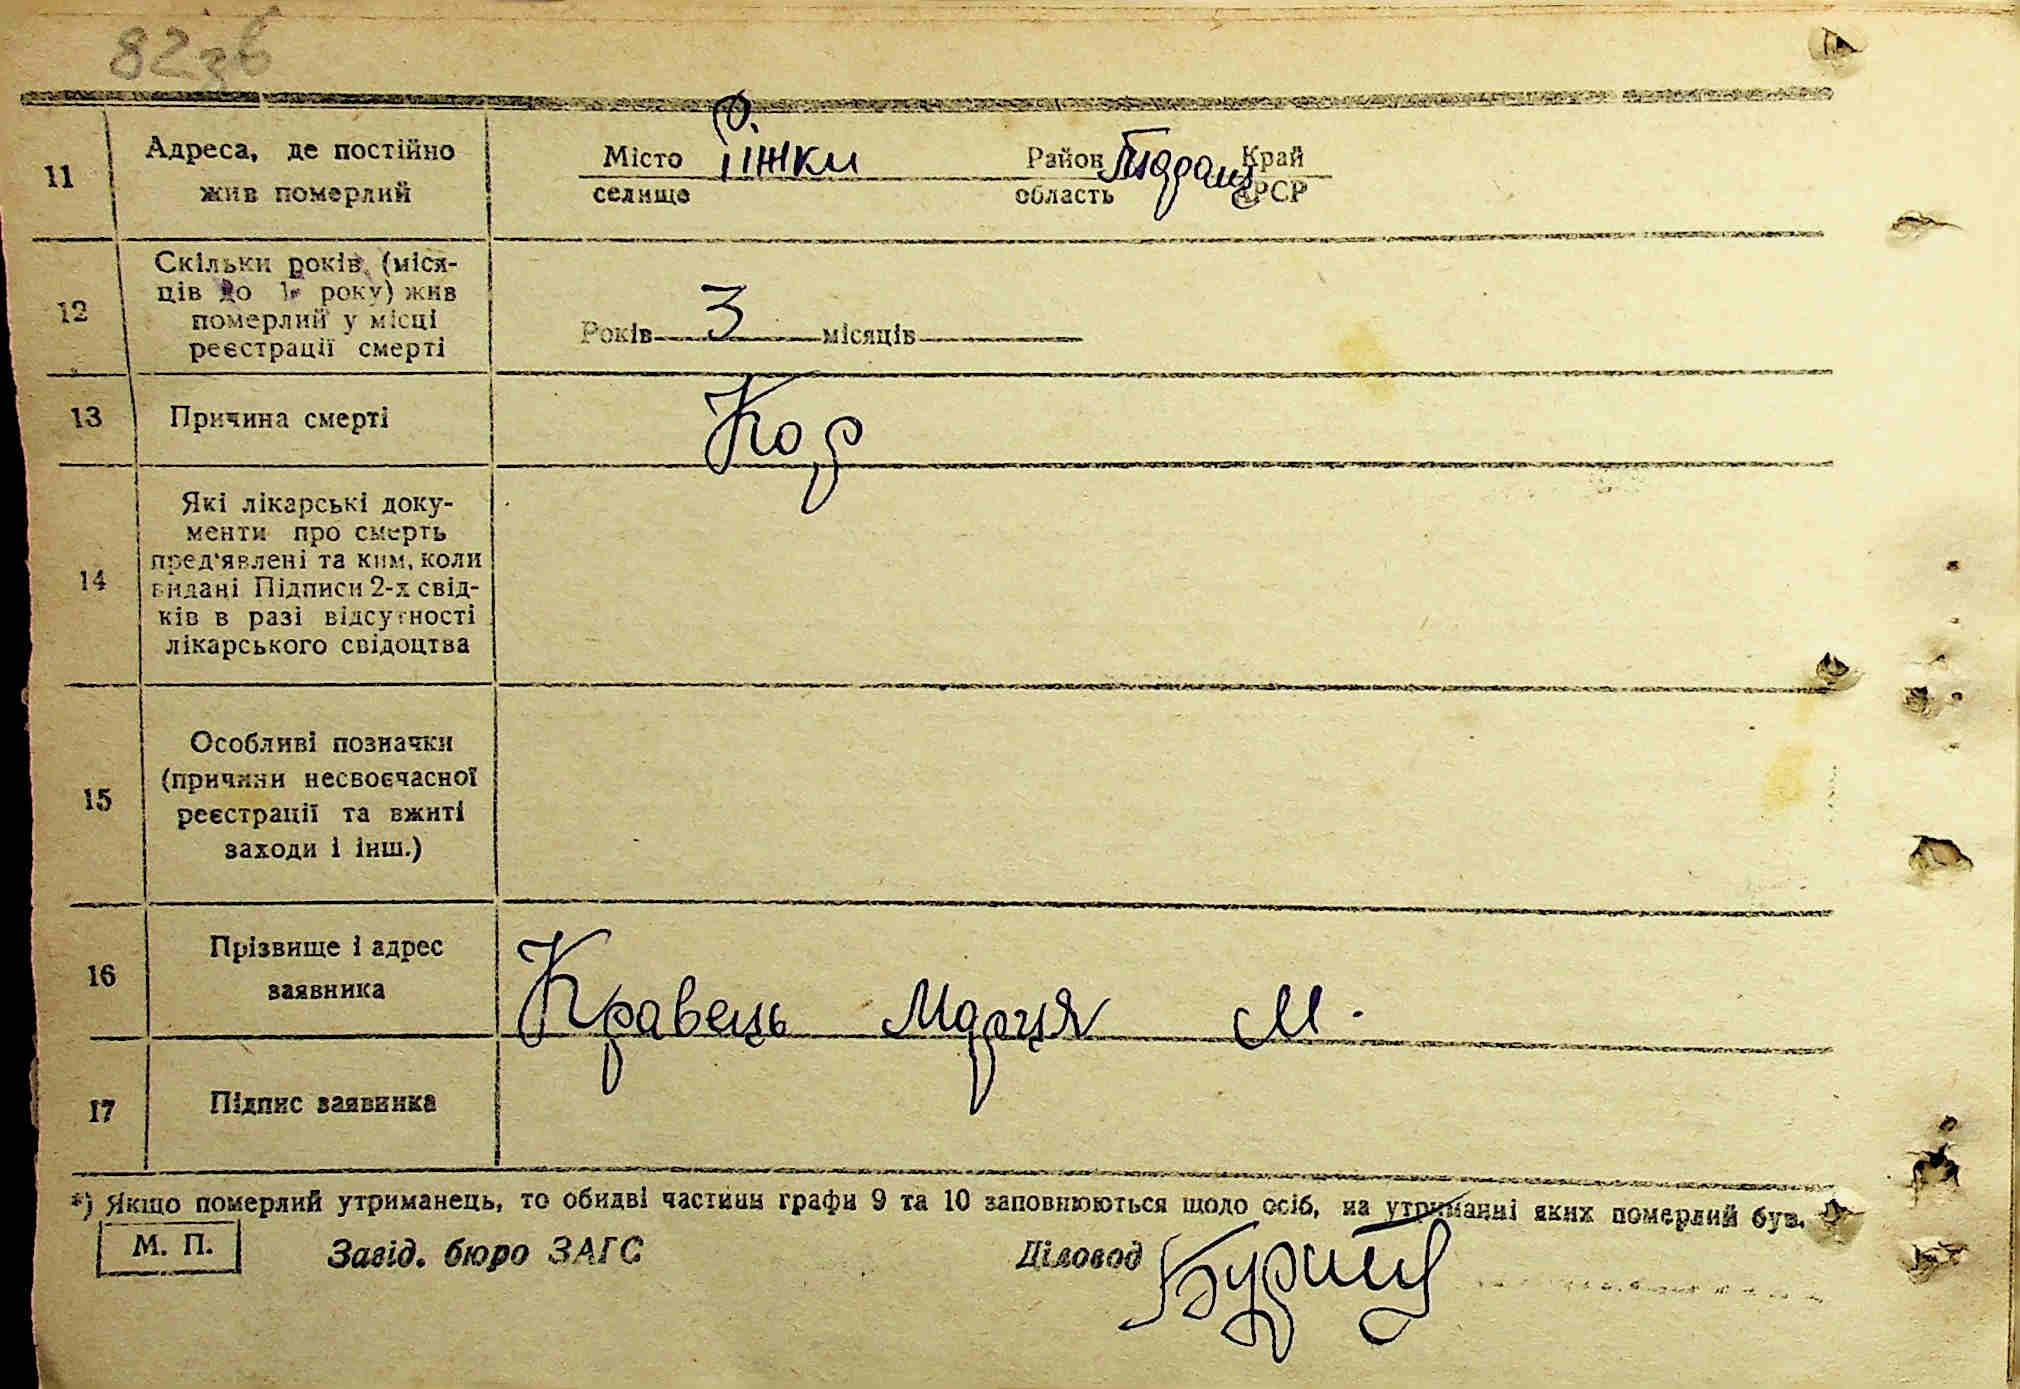 82зв
11 Адреса, де постійно жив померлий
Місто Ріжки Район Край
селище область АРСР
12 Скільки років (міся-
ців до 1 року) жив
померлий у місці
реєстрації смерті
Років 3 місяців
13 Причина смерті Кор
14 Які лікарські доку-
менти про смерть
пред'явлені та ким, коли
видані Підписи 2-х свід-
ків в разі відсутності
лікарського свідоцтва
15 Особливі позначки
(причини несвоєчасної
реєстрації та вжиті
заходи і інш.)
16 Прізвище і адрес
заявника
Кравець Марця М.
17 Підпис заявника
*) Якщо померлий утриманець, то обидві частини графи 9 та 10 заповнюються щодо осіб, на утриманні яких померлий був.
М. П. Завід. бюро ЗАГС Діловод